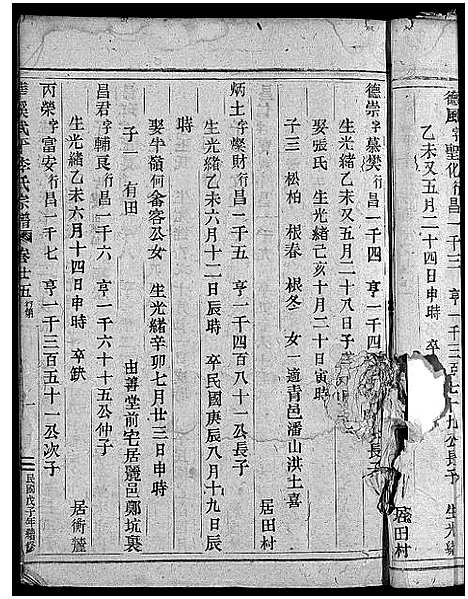 德風字聖化行昌一千三 亨一千三百七十九公長子 生光緒
乙未又五月二十四日申時 卒 居田村
德崇字慕樊行昌一千四 亨一千四 公長子
生光緒乙未又五月二十八日子
娶張氏 生光緒己亥十月二十日寅時
子三 松柏 根春 根冬 女一適青邑潘山洪土喜
居田村
炳土字燦財行昌一千五 亨一千四百八十一公長子
生光緒乙未六月十二日辰時 卒民國庚辰八月十九日辰
時
娶半嶺何畚客公女 生光緒辛卯七月廿三日申時
子一 有田 由善堂前宅居麗邑鄭坑裏
昌君字輔良行昌一千六 亨一千六十五公仲子
生光緒乙未六月十四日申時 卒缺 居衕麓
丙榮字富安行昌一千七 亨一千三百五十一公次子
溪武平李氏宗譜 卷廿五 行第 一 民國戊子年續修